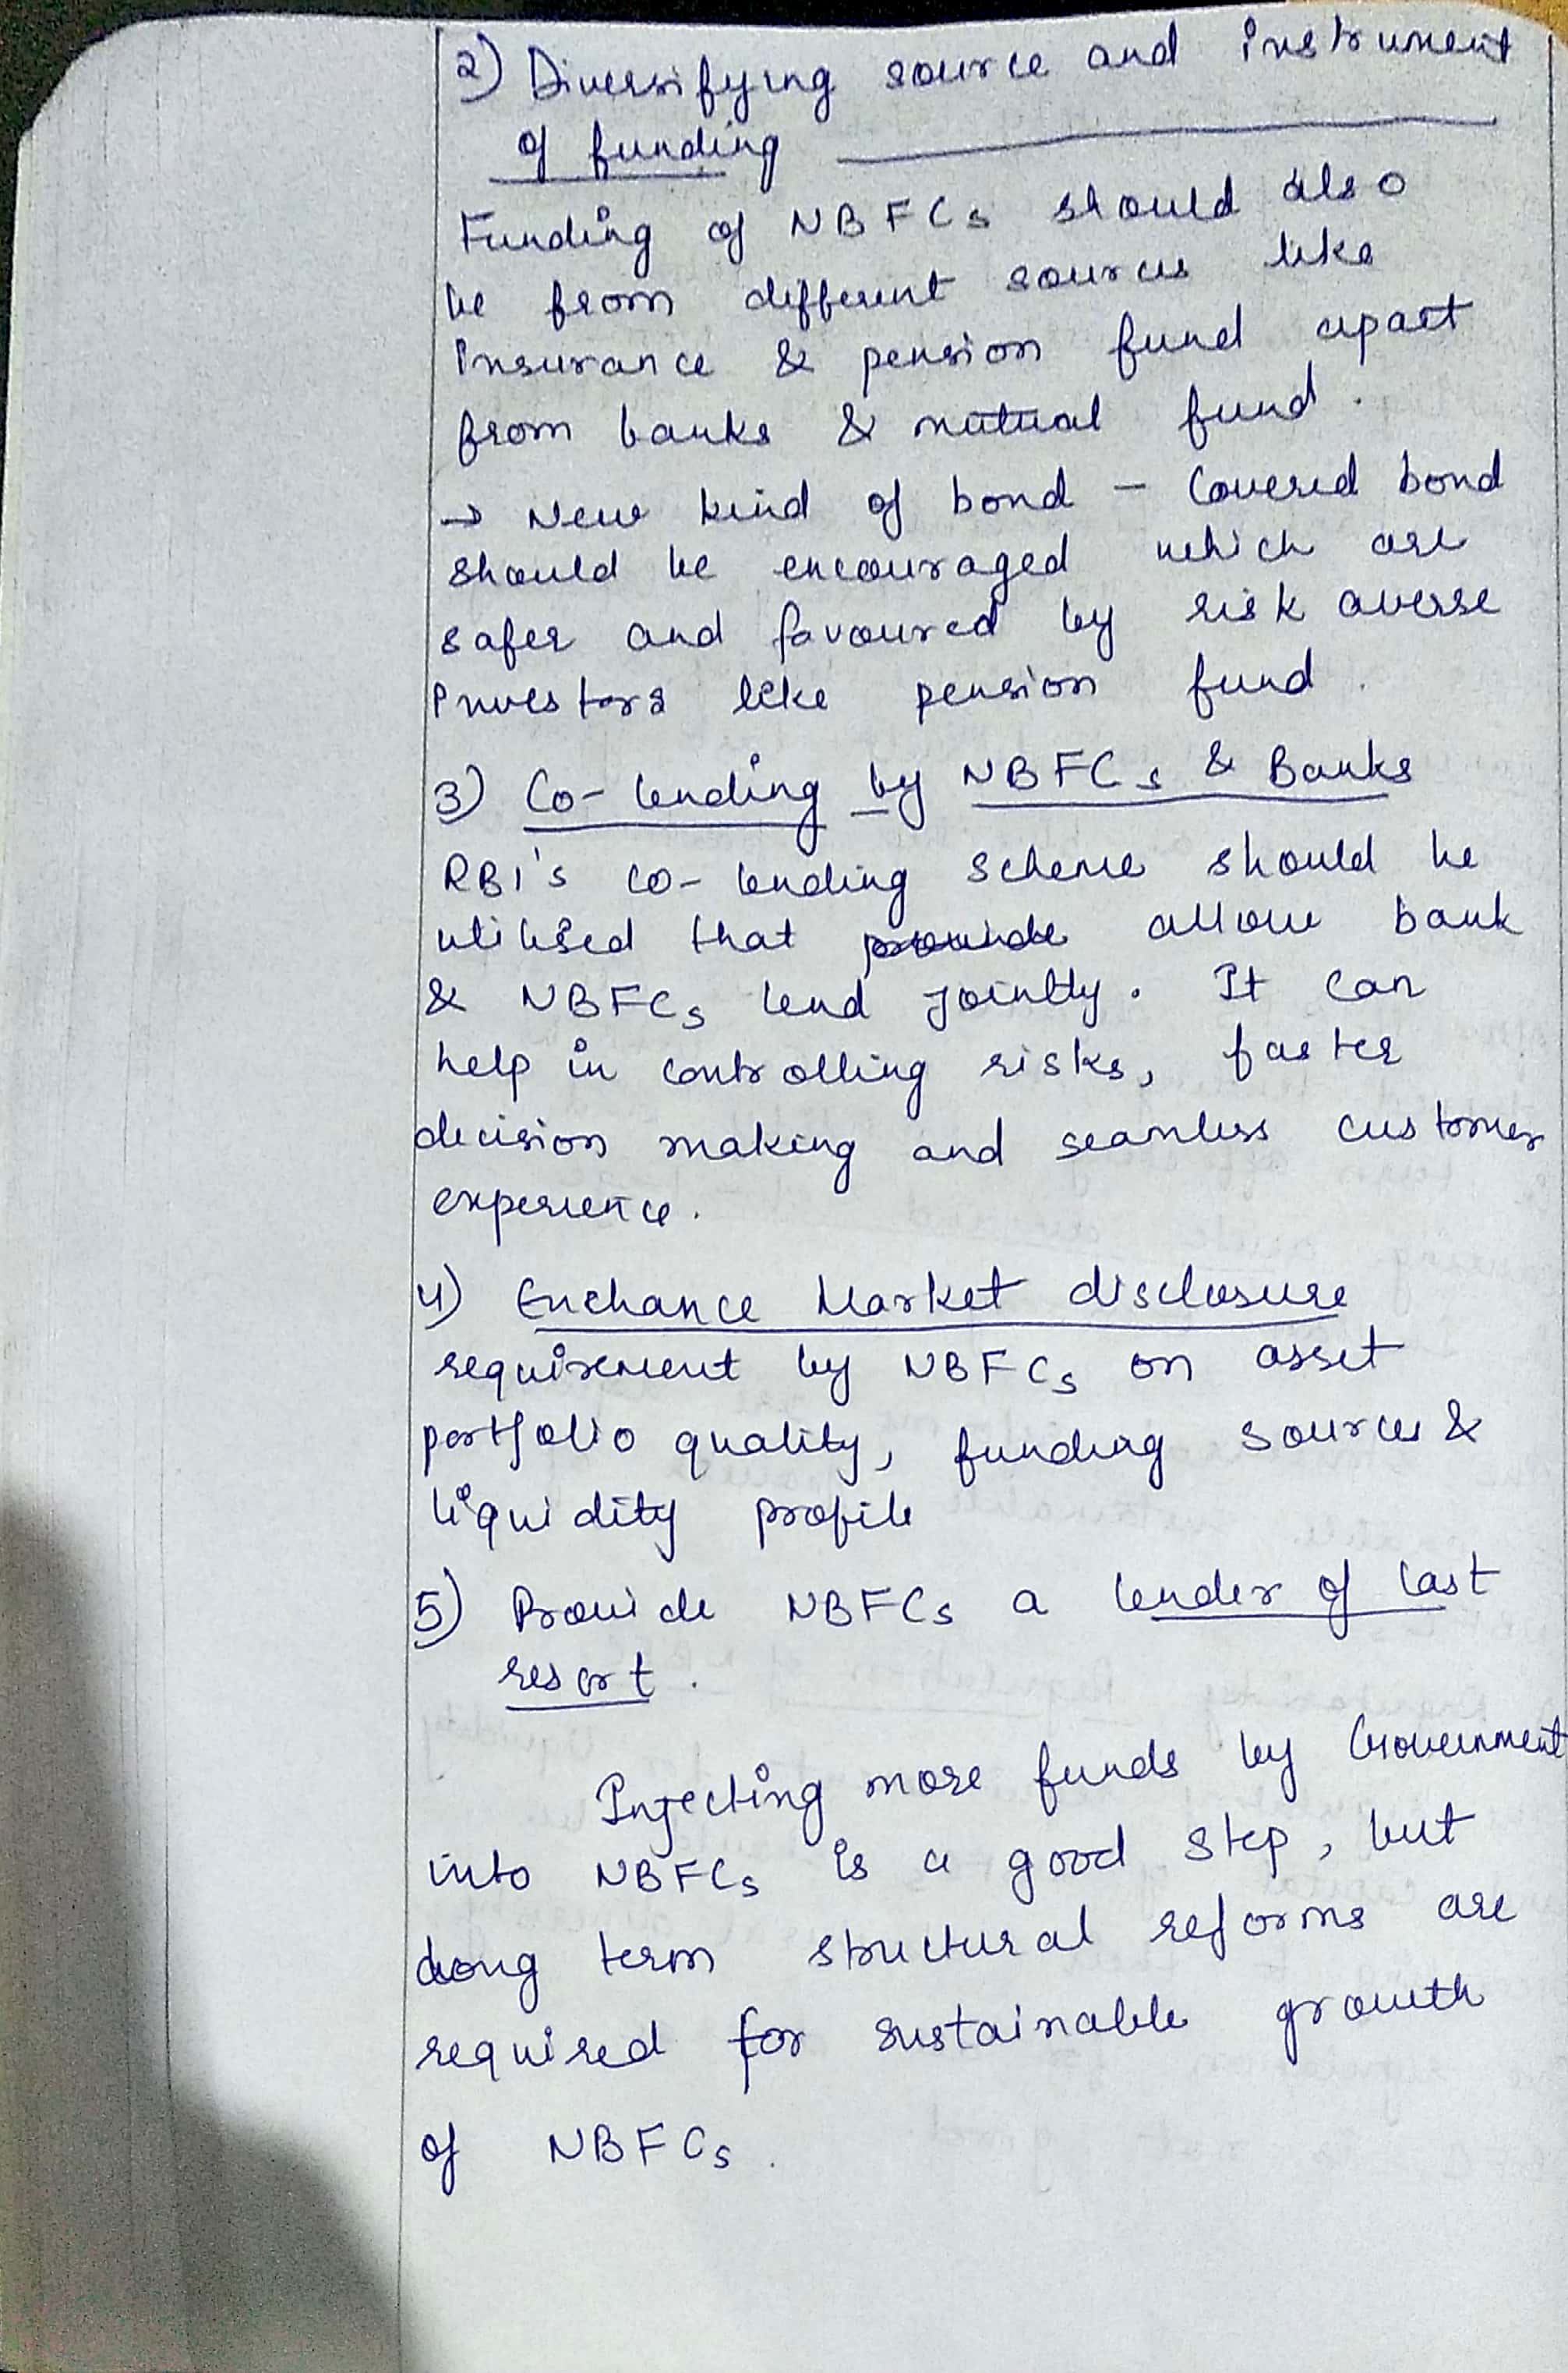 2) Diversifying source and instrument
of funding
Funding of NBFCs should also
be from different sources like
Insurance & pension fund apart
from banks & mutual fund.
→ New kind of bond - Covered bond
should be encouraged which are
safer and favoured by risk averse
Investors like pension fund.
3) Co-lending by NBFCs & Banks
RBI's co-lending scheme should be
utilised that provide allow bank
& NBFCs lend jointly. It can
help in controlling risks, faster
decision making and seamless customer
experience.
4) Enchance Market disclosure
requirement by NBFCs on asset
portfolio quality, funding sources &
liquidity profile
5) Provide NBFCs a lender of last
resort.
Injecting more funds by Government
into NBFCs is a good step, but
long term structural reforms are
required for sustainable growth
of NBFCs.